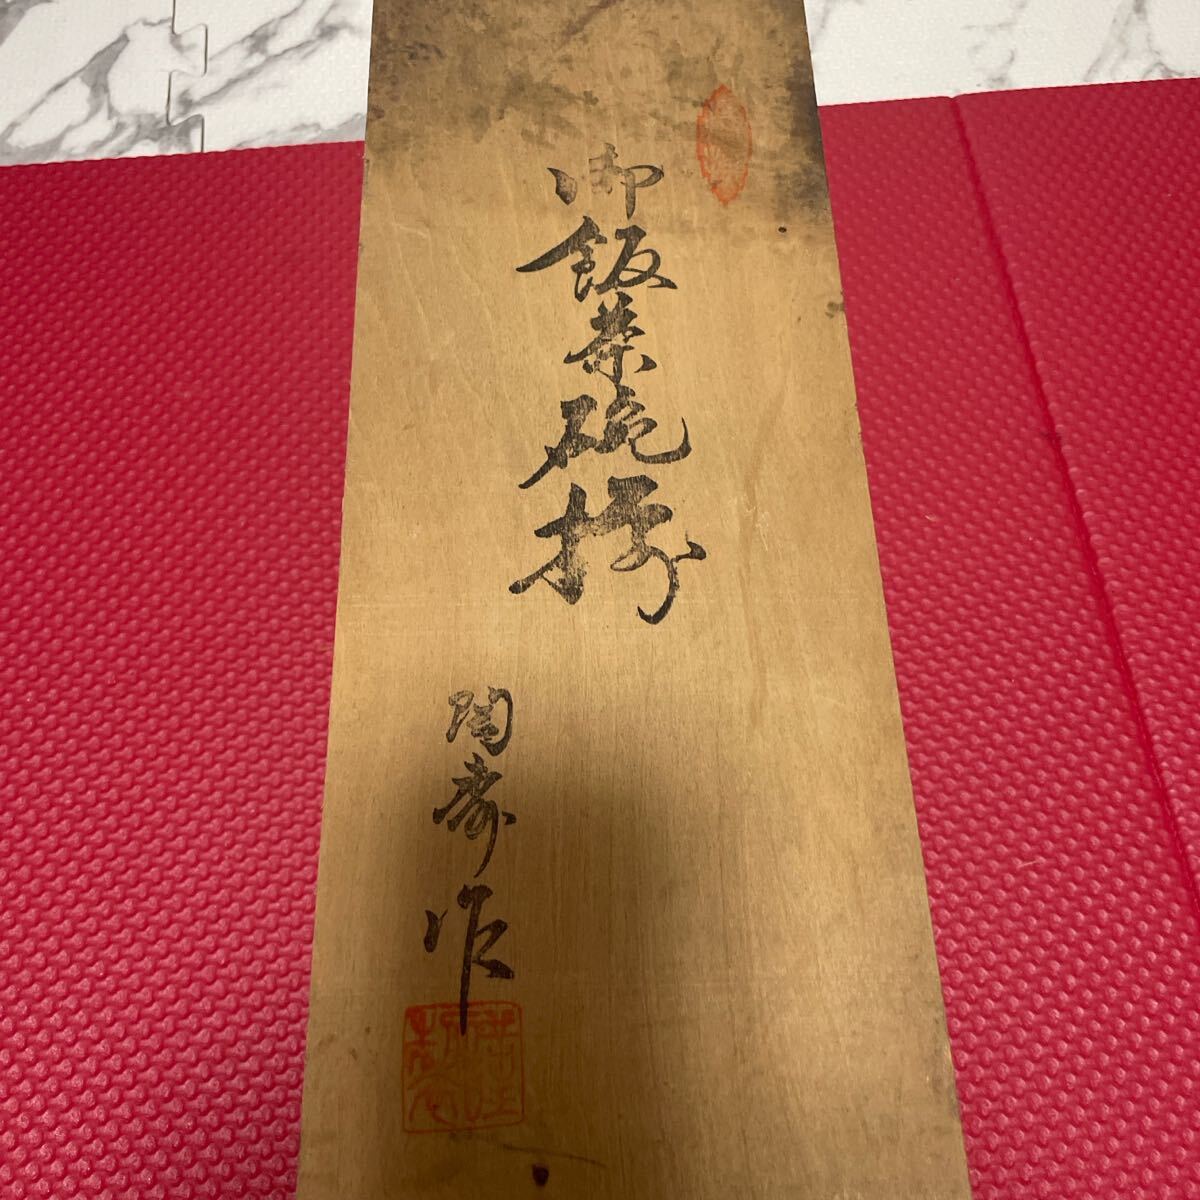 御飯茶碗揃
陶寿作